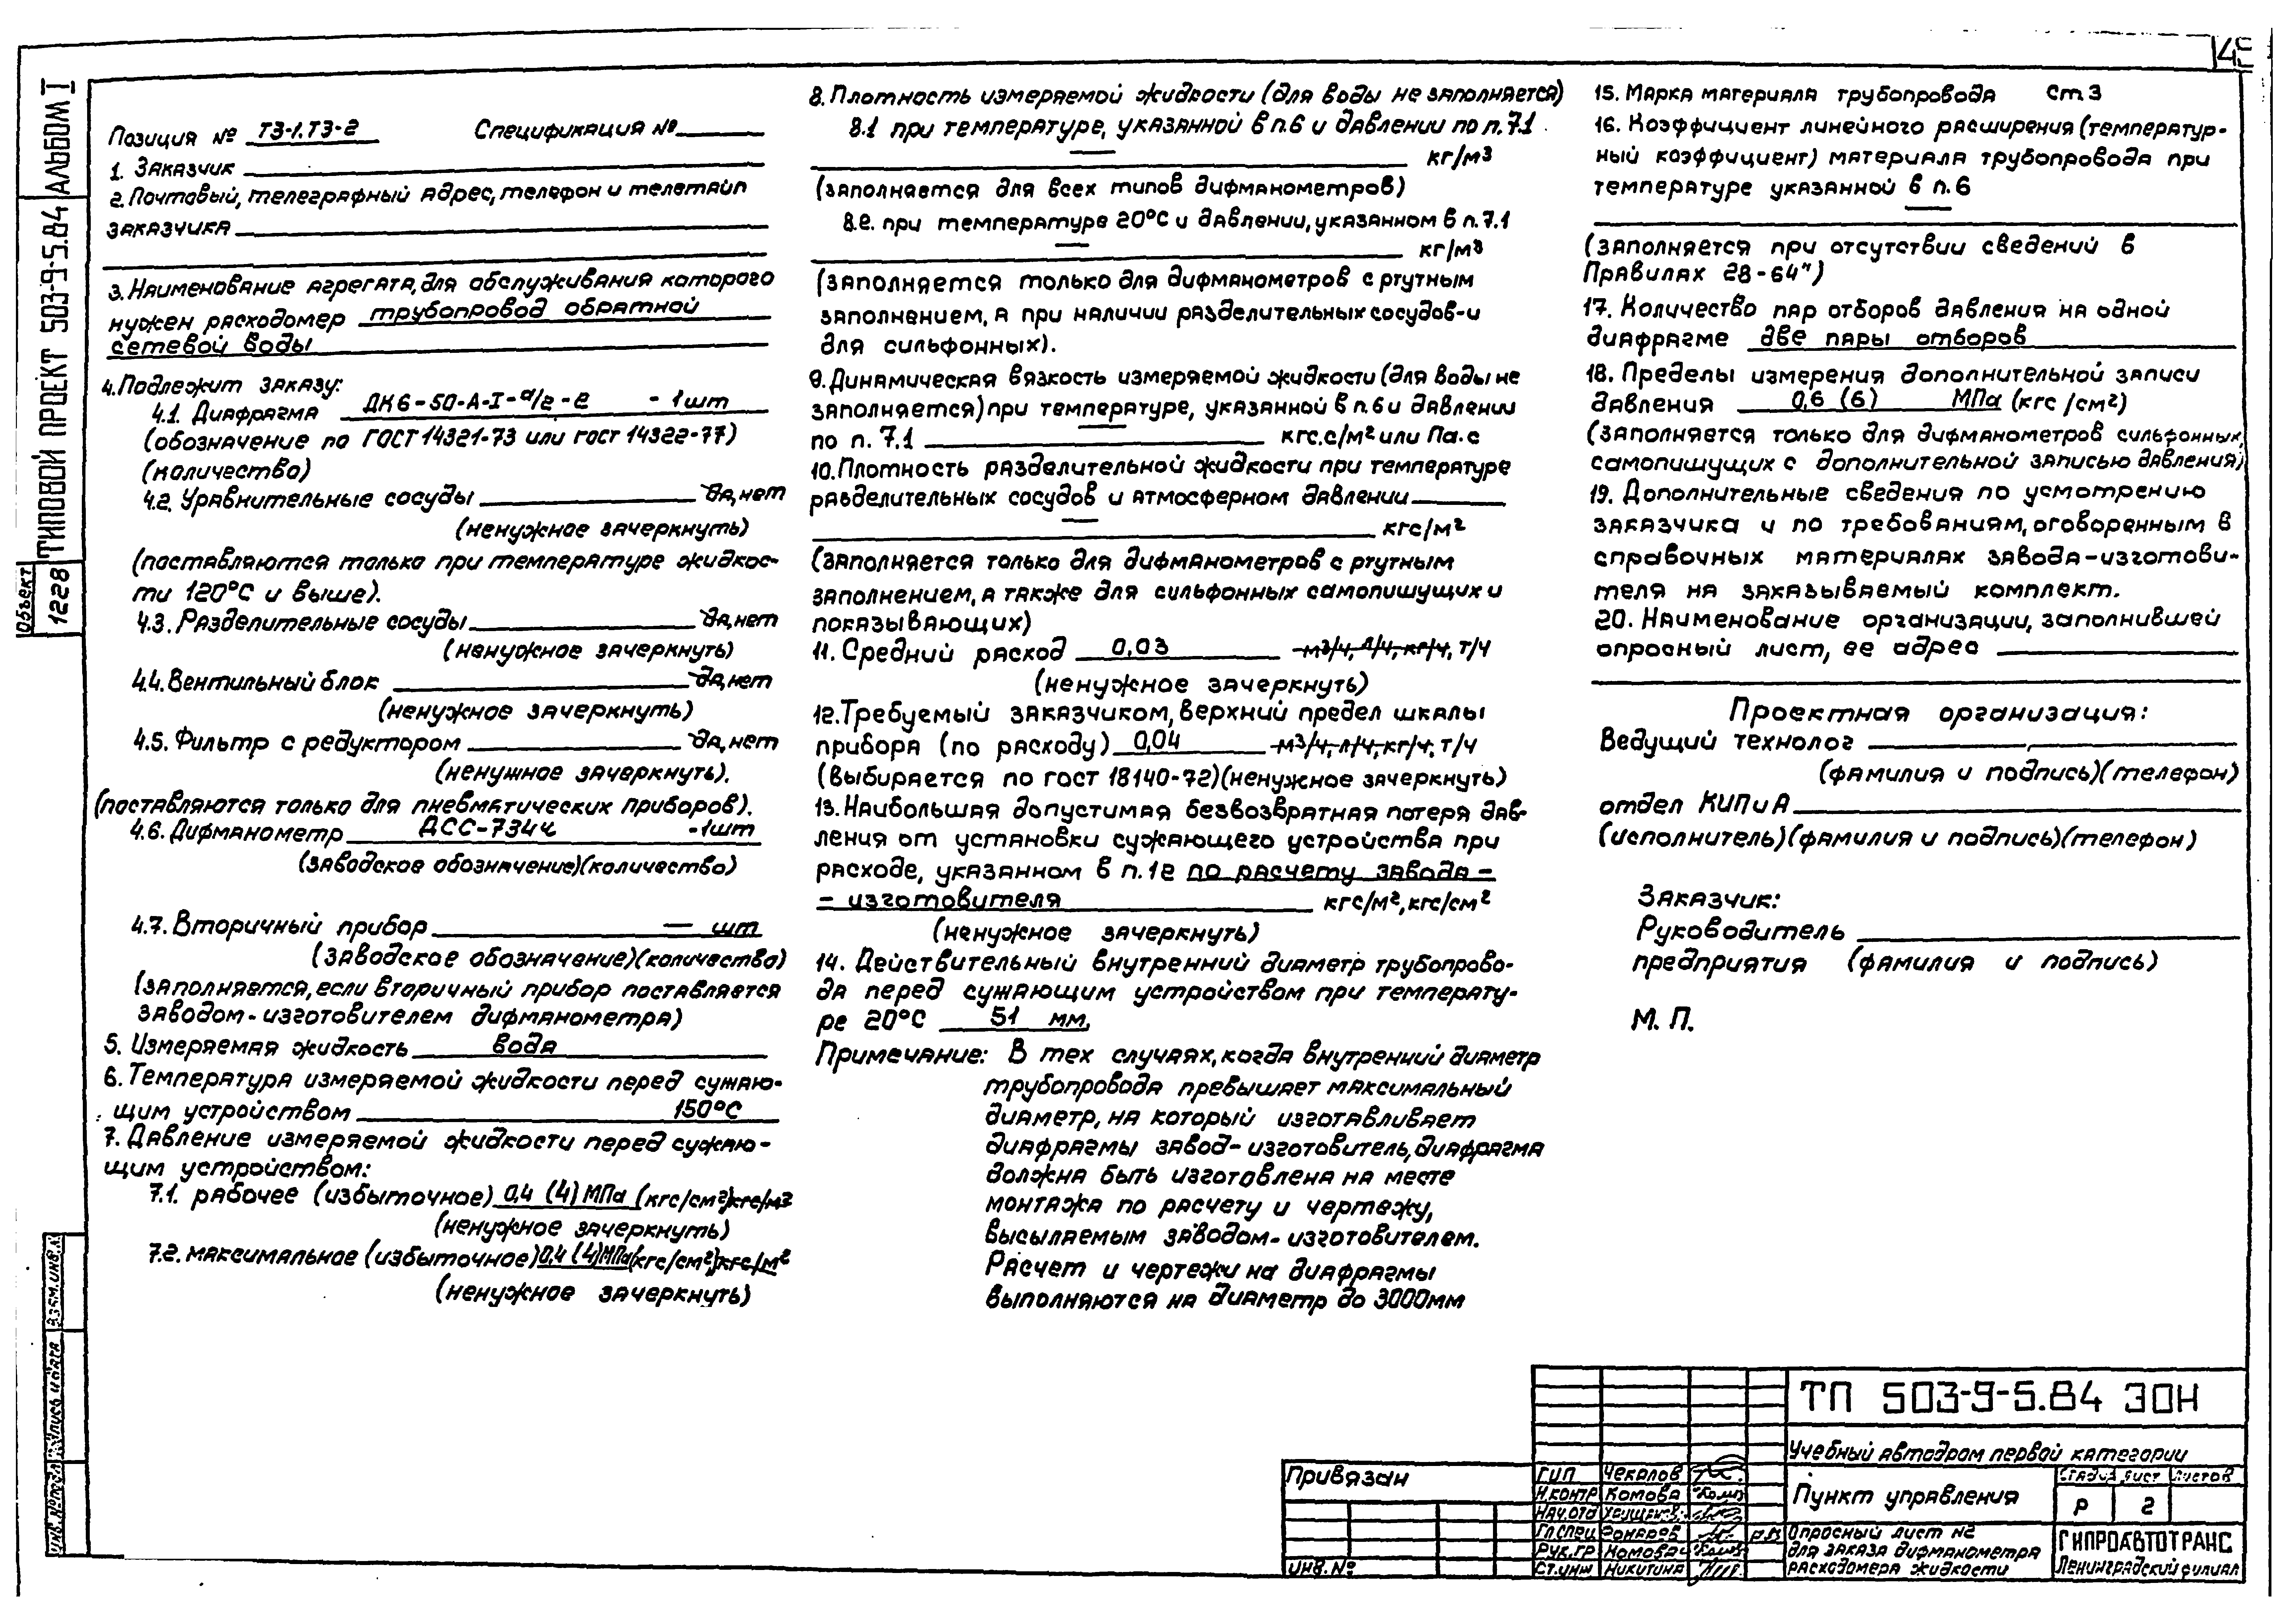 45
АЛЬБОМ I
ТИПОВОЙ ПРОЕКТ 503-9-5.84
Объект
1228
Позиция № ТЗ-1, ТЗ-2 Спецификация №
1. Заказчик
2. Почтовый, телеграфный адрес, телефон и телетайп
заказчика
3. Наименование агрегата, для обслуживания которого
нужен расходомер трубопровод обратной
сетевой воды
4. Подлежит заказу:
4.1. Диафрагма ДК6-50-А-I-а/г-2 - 1шт
(обозначение по ГОСТ 14321-73 или гост 14322-77)
(количество)
4.2. Уравнительные сосуды да, нет
(ненужное зачеркнуть)
(поставляются только при температуре жидкос-
ти 120°С и выше).
4.3. Разделительные сосуды да, нет
(ненужное зачеркнуть)
4.4. Вентильный блок да, нет
(ненужное зачеркнуть)
4.5. Фильтр с редуктором да, нет
(ненужное зачеркнуть).
(поставляются только для пневматических приборов).
4.6. Дифманометр ДСС-734ч -1шт
(заводское обозначение)(количество)
4.7. Вторичный прибор — шт
(заводское обозначение)(количество)
(заполняется, если вторичный прибор поставляется
заводом-изготовителем дифманометра)
5. Измеряемая жидкость вода
6. Температура измеряемой жидкости перед сужаю-
щим устройством 150°С
7. Давление измеряемой жидкости перед сужаю-
щим устройством:
7.1. рабочее (избыточное) 0,4 (4) МПа (кгс/см²) кгс/м²
(ненужное зачеркнуть)
7.2. максимальное (избыточное) 0,4 (4) МПа (кгс/см²) кгс/м²
(ненужное зачеркнуть)
8. Плотность измеряемой жидкости (для воды не заполняется)
8.1 при температуре, указанной в п.6 и давлении по п.7.1
— кг/м³
(заполняется для всех типов дифманометров)
8.2. при температуре 20°С и давлении, указанном в п.7.1
— кг/м³
(заполняется только для дифманометров с ртутным
заполнением, а при наличии разделительных сосудов-и
для сильфонных).
9. Динамическая вязкость измеряемой жидкости (для воды не
заполняется) при температуре, указанной в п.6 и давлении
по п. 7.1 — кгс.с/м² или Па·с
10. Плотность разделительной жидкости при температуре
разделительных сосудов и атмосферном давлении
— кгс/м²
(заполняется только для дифманометров с ртутным
заполнением, а также для сильфонных самопишущих и
показывающих)
11. Средний расход 0,03 м³/ч, л/ч, кг/ч, т/ч
(ненужное зачеркнуть)
12. Требуемый заказчиком, верхний предел шкалы
прибора (по расходу) 0,04 м³/ч, л/ч, кг/ч, т/ч
(выбирается по гост 18140-72)(ненужное зачеркнуть)
13. Наибольшая допустимая безвозвратная потеря дав-
ления от установки сужающего устройства при
расходе, указанном в п.12 по расчету завода -
- изготовителя кгс/м², кгс/см²
(ненужное зачеркнуть)
14. Действительный внутренний диаметр трубопрово-
да перед сужающим устройством при температу-
ре 20°С 51 мм.
Примечание: В тех случаях, когда внутренний диаметр
трубопровода превышает максимальный
диаметр, на который изготавливает
диафрагмы завод-изготовитель, диафрагма
должна быть изготовлена на месте
монтажа по расчету и чертежу,
высылаемым заводом-изготовителем.
Расчет и чертежи на диафрагмы
выполняются на диаметр до 3000мм
15. Марка материала трубопровода Ст.3
16. Коэффициент линейного расширения (температур-
ный коэффициент) материала трубопровода при
температуре указанной в п.6
—
(заполняется при отсутствии сведений в
Правилах 28-64")
17. Количество пар отборов давления на одной
диафрагме две пары отборов
18. Пределы измерения дополнительной записи
давления 0,6 (6) МПа (кгс/см²)
(заполняется только для дифманометров сильфонных,
самопишущих с дополнительной записью давления)
19. Дополнительные сведения по усмотрению
заказчика и по требованиям, оговоренным в
справочных материалах завода-изготови-
теля на заказываемый комплект.
20. Наименование организации, заполнившей
опросный лист, ее адрес
Проектная организация:
Ведущий технолог
(фамилия и подпись)(телефон)
отдел КИПиА
(исполнитель)(фамилия и подпись)(телефон)
Заказчик:
Руководитель
предприятия (фамилия и подпись)
М. П.
ТП 503-9-5.84 ЭОН
Учебный автодром первой категории
Пункт управления
Стадия Лист Листов
Р 2
Опросный лист №2
для заказа дифманометра
расходомера жидкости
ГИПРОАВТОТРАНС
Ленинградский филиал
Привязан
ИНВ. №
ГИП Чекалов
Н.контр Комова
Нач.отд
Гл.спец
Рук.гр Комова
Ст.инж Никитина
Взам.инв.№
Подпись и дата
Инв. № подл